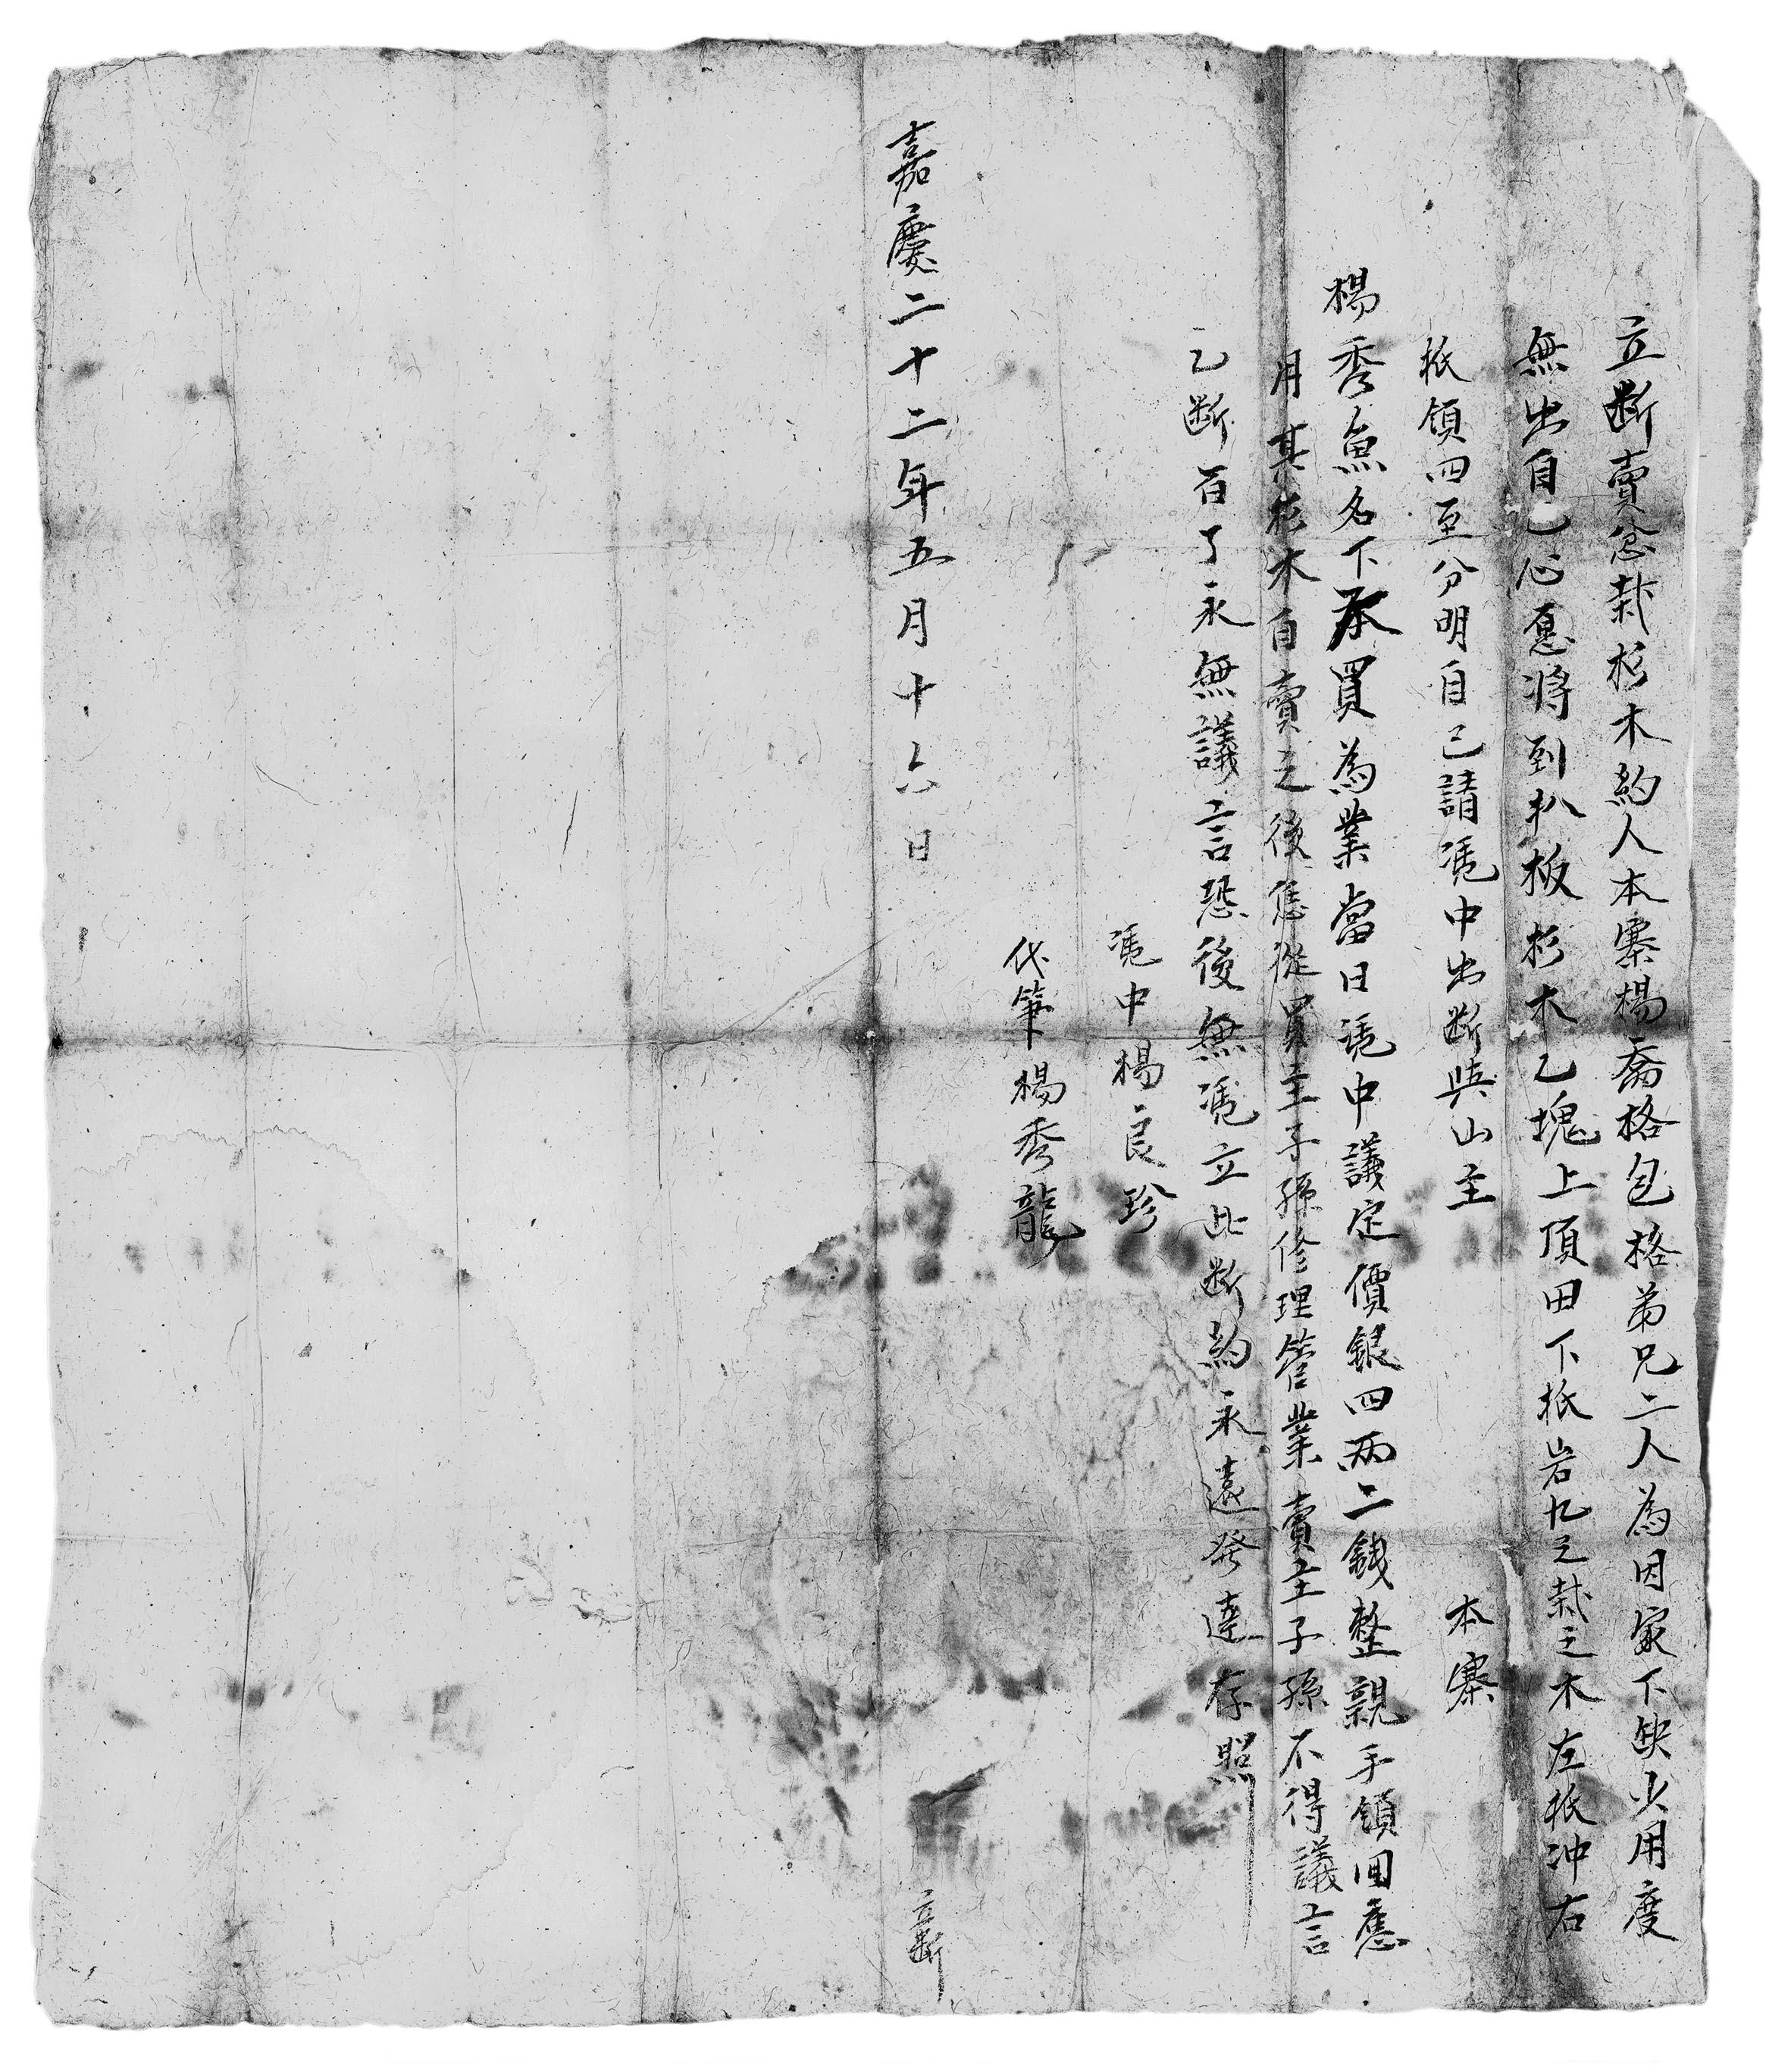 立断賣岔栽杉木約人本寨楊喬格包格弟兄二人為因家下缺少用度
無出自己心愿将到扒板杉木乙塊上頂田下抵岩九之栽之木左抵冲右
抵領四至分明自己請凴中出断與山主 本寨
楊秀魚名下承買為業當日凴中議定價銀四两二錢整親手領回應
用其杉木自賣之後恁從買主子孫修理管業賣主子孫不得議言
乙断百了永無議言恐後無凴立此断約永遠發達存照
凴中楊良珍
代筆楊秀龍
嘉慶二十二年五月十六日 立断